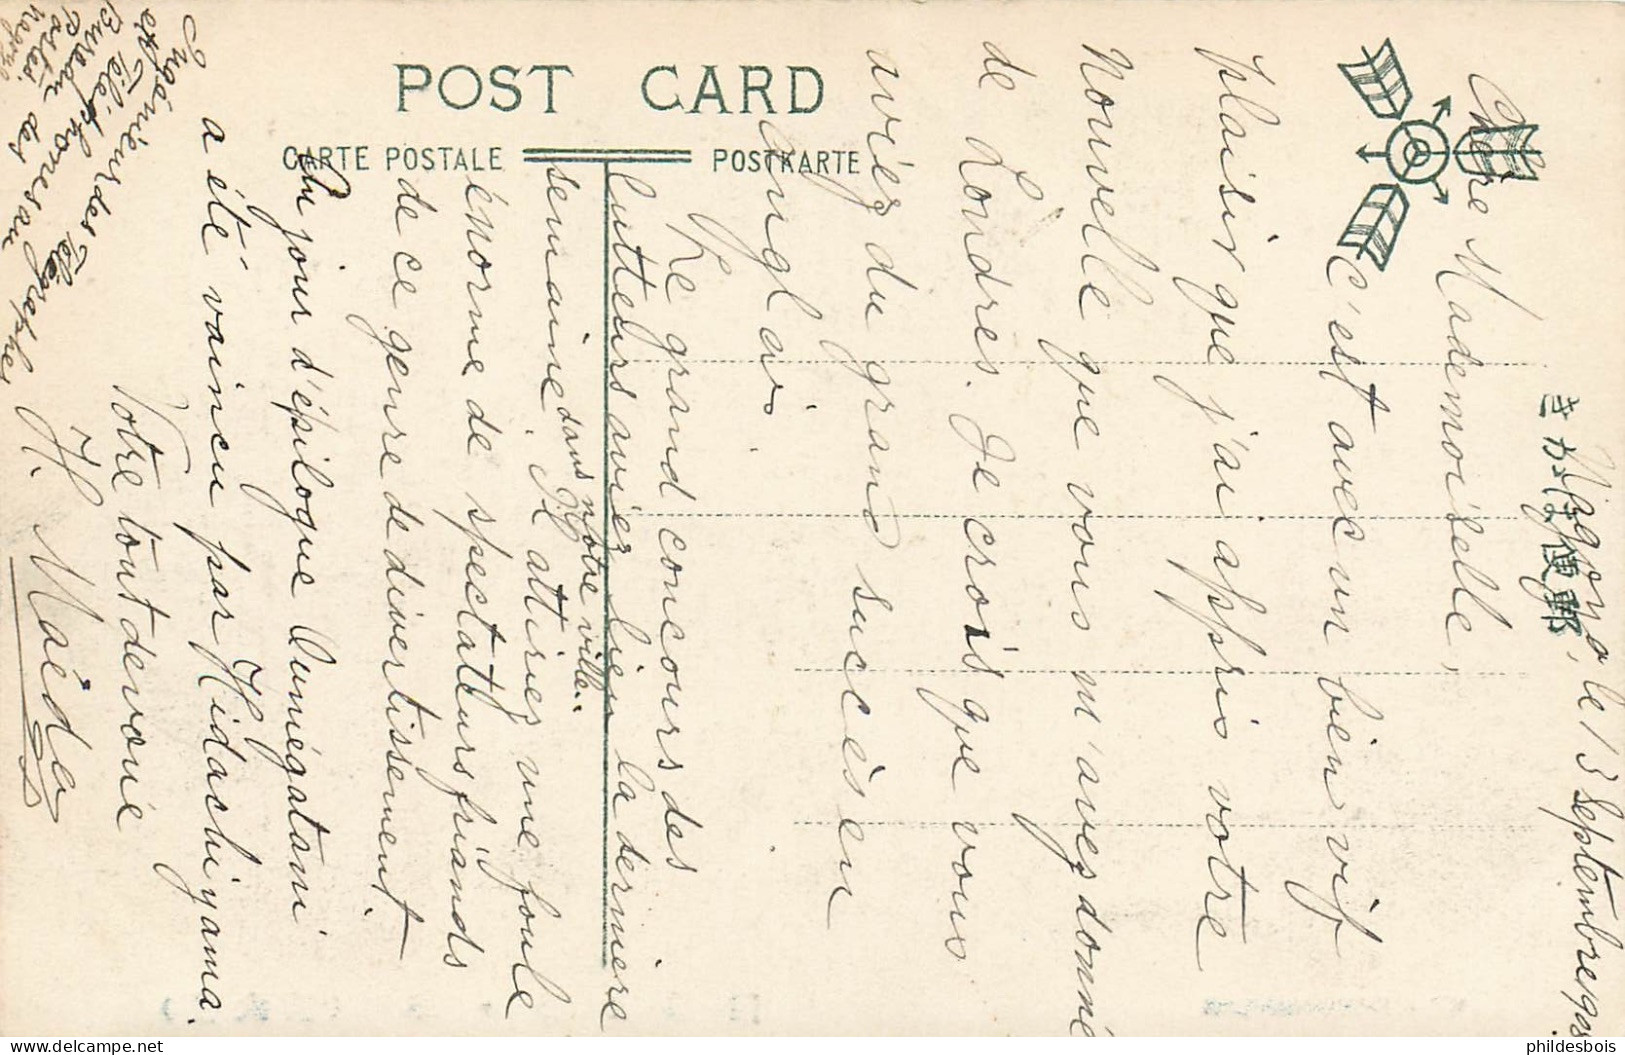 POST CARD
CARTE POSTALE
POSTKARTE
きかは便郵
Nagoya, le 13 Septembre 1908
Chère Mademoiselle,
C'est avec un bien vif
plaisir que j'ai appris votre
Nouvelle que vous m'avez donné
de Londres. Je crois que vous
aviez du grand succès en
Anglais.
Le grand concours des
lutteurs aviez lieu la dernière
semaine dans notre ville. Il attirer une foule
énorme de spectateurs friands
de ce genre de divertissement.
Au jour d'épilogue Oumégatani
a été vaincu par Hidachiyama.
Votre tout dévoué
H. Maéda
Ingénieur des Télégraphes
et Téléphones au
Bureau des
Postes